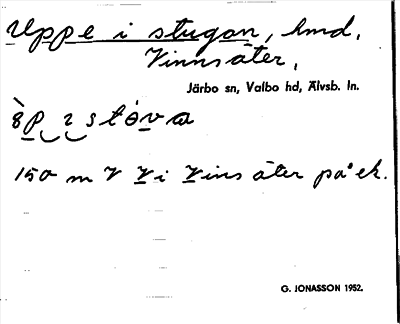 Uppe i stugan, hmd,
Vinnsäter,
Järbo sn, Valbo hd, Älvsb. ln.
150 m V Vi Vinsäter på ek.
G. JONASSON 1952.